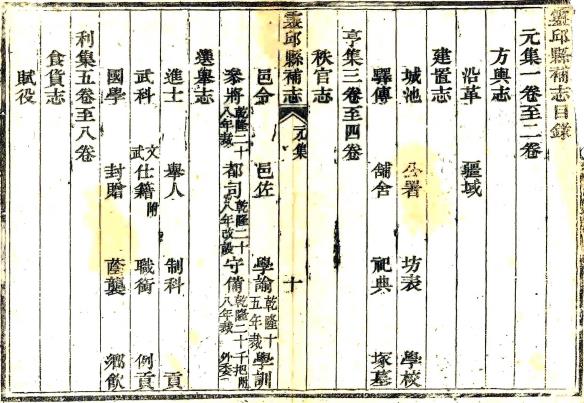 靈邱縣補志目錄
元集一卷至二卷
方輿志
沿革 疆域
建置志
城池 公署 坊表 學校
驛傳 舖舍 祀典 塚墓
亨集三卷至四卷
秩官志
靈邱縣補志 元集 十
邑令 邑佐 學諭乾隆十五年裁 學訓
參將乾隆二十八年裁 都司乾隆二十八年改設 守備乾隆二十八年裁 千把外委
選舉志
進士 舉人 制科 貢
武科 文武仕籍附 職銜 例貢
國學 封贈 蔭襲 鄉飲
利集五卷至八卷
食貨志
賦役